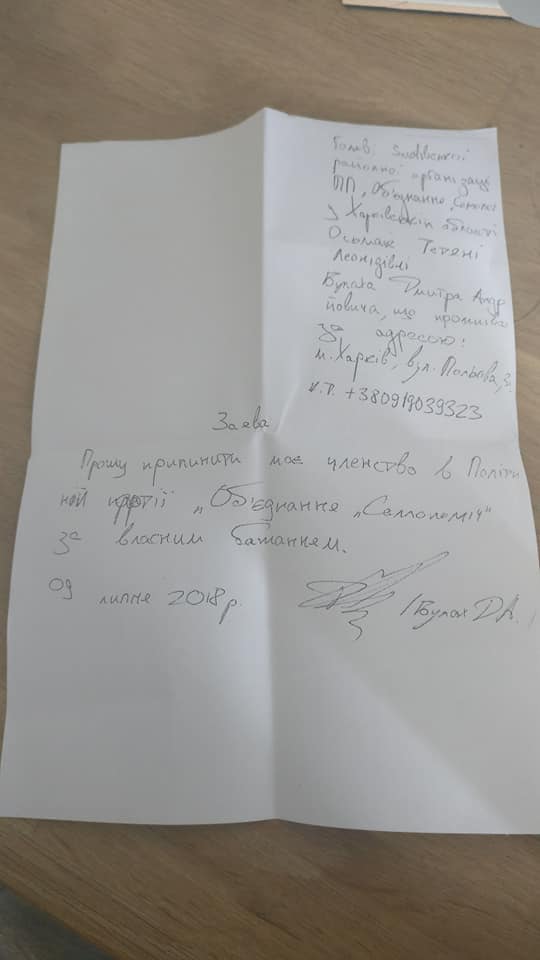 Голові
районної організації
ПП „Об'єднання „Самопоміч"
у Харківській області
Осьмак Тетяні
Леонідівні
Булаха Дмитра Андр
йовича, що прожива
за адресою:
м. Харків, вул. Польова,
к.т. +380919039323
Заява
Прошу припинити моє членство в Політи
ній партії „Об'єднання „Самопоміч"
за власним бажанням.
09 липня 2018 р. /Булах Д.А./